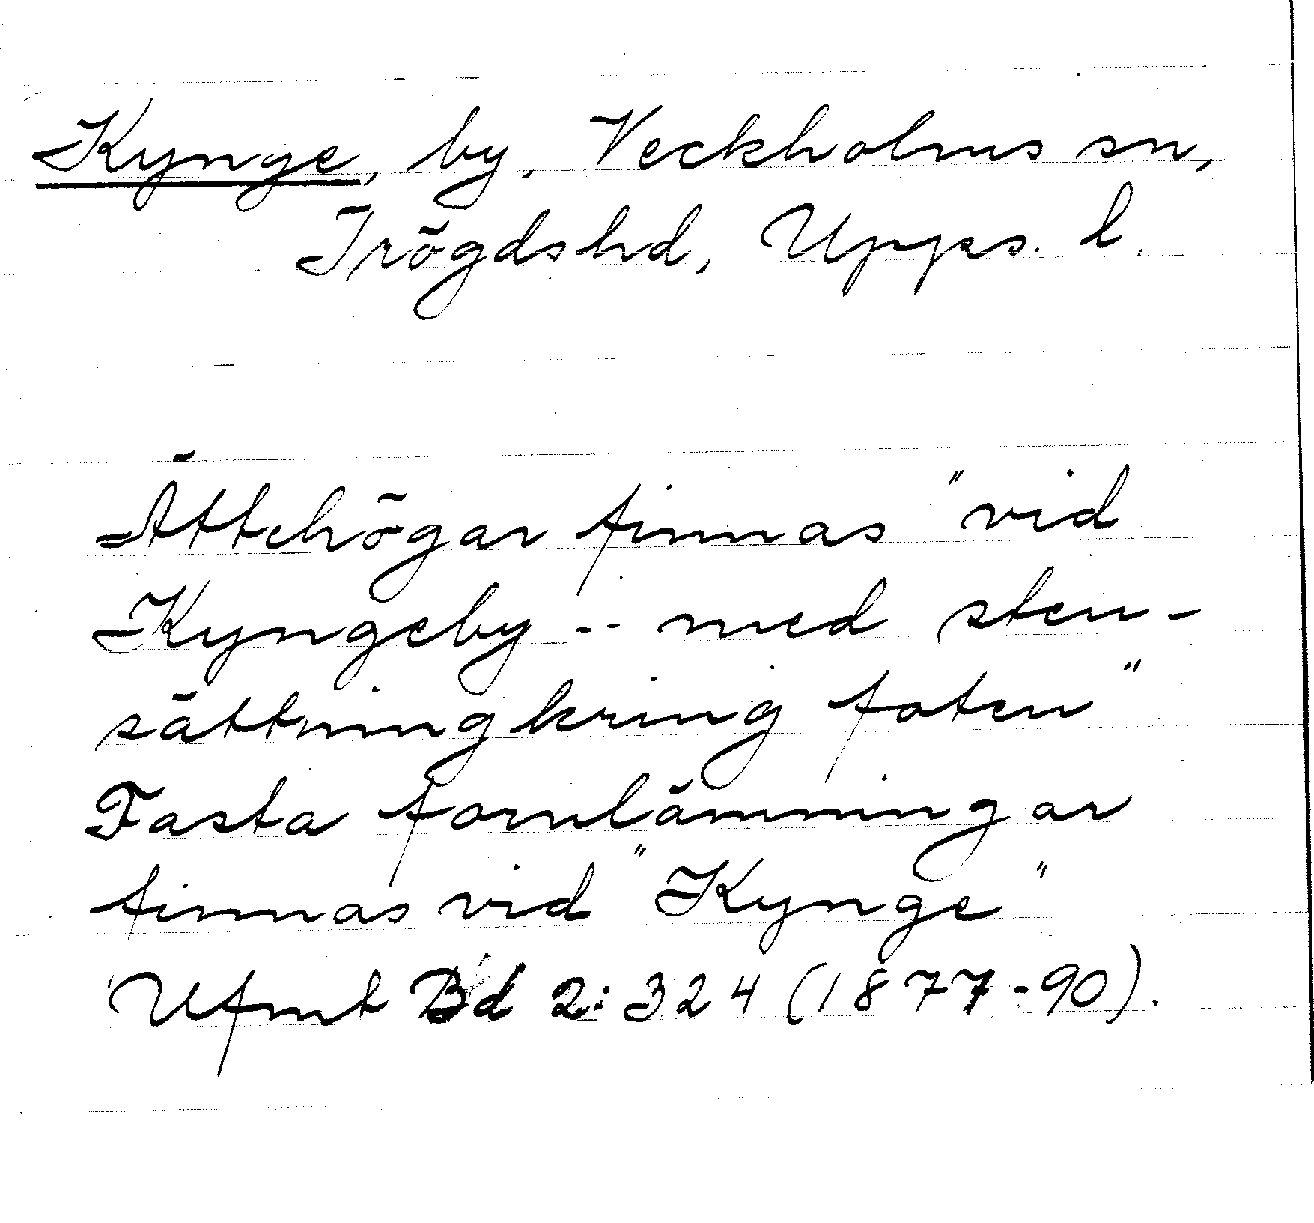 Kynge, by, Veckholms sn,
Trögds hd, Upps. l.
Ättehögar finnas "vid
Kyngeby -- med sten-
sättning kring foten"
Fasta fornlämningar
finnas vid "Kynge"
Ufmt Bd 2: 324 (1877-90).